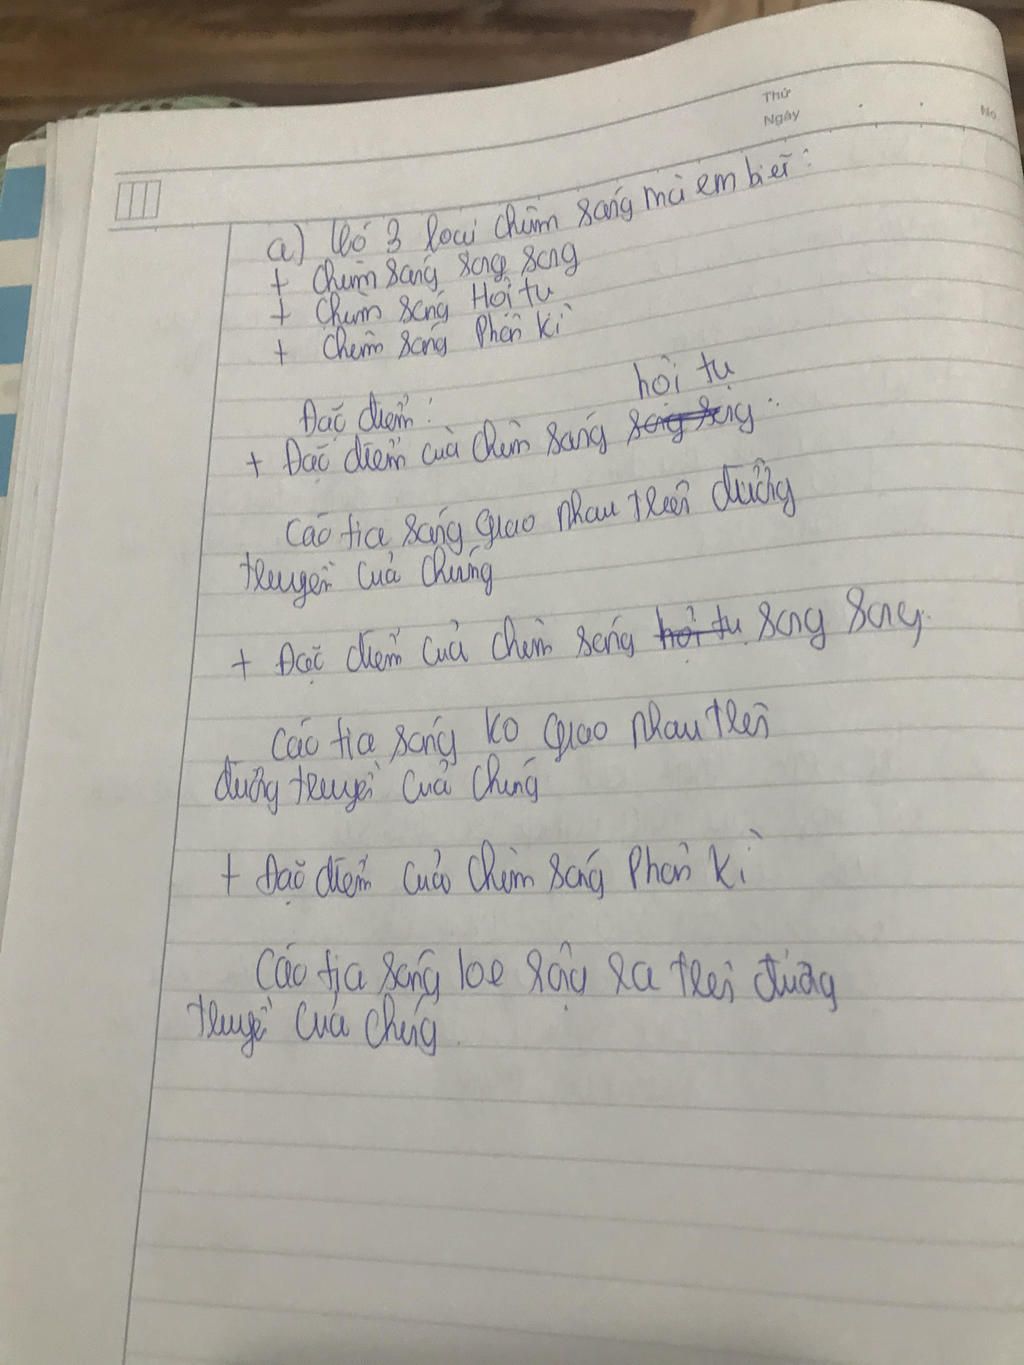 Thứ
Ngày
No.
a) Có 3 loại chùm sáng mà em biết:
+ Chùm sáng song song
+ Chùm sáng Hội tụ
+ Chùm sáng Phân kì
Đặc điểm:
hội tụ
+ Đặc điểm của chùm sáng song song:
Các tia sáng giao nhau trên đường
truyền của chúng
+ Đặc điểm của chùm sáng hội tụ song song.
Các tia sáng ko giao nhau trên
đường truyền của chúng
+ Đặc điểm của chùm sáng Phân kì
Các tia sáng loe rộng ra trên đường
truyền của chúng.